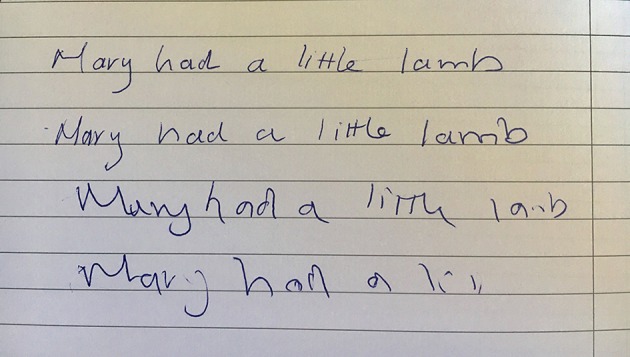 Mary had a little lamb
Mary had a little lamb
Mary had a little lamb
Mary had a